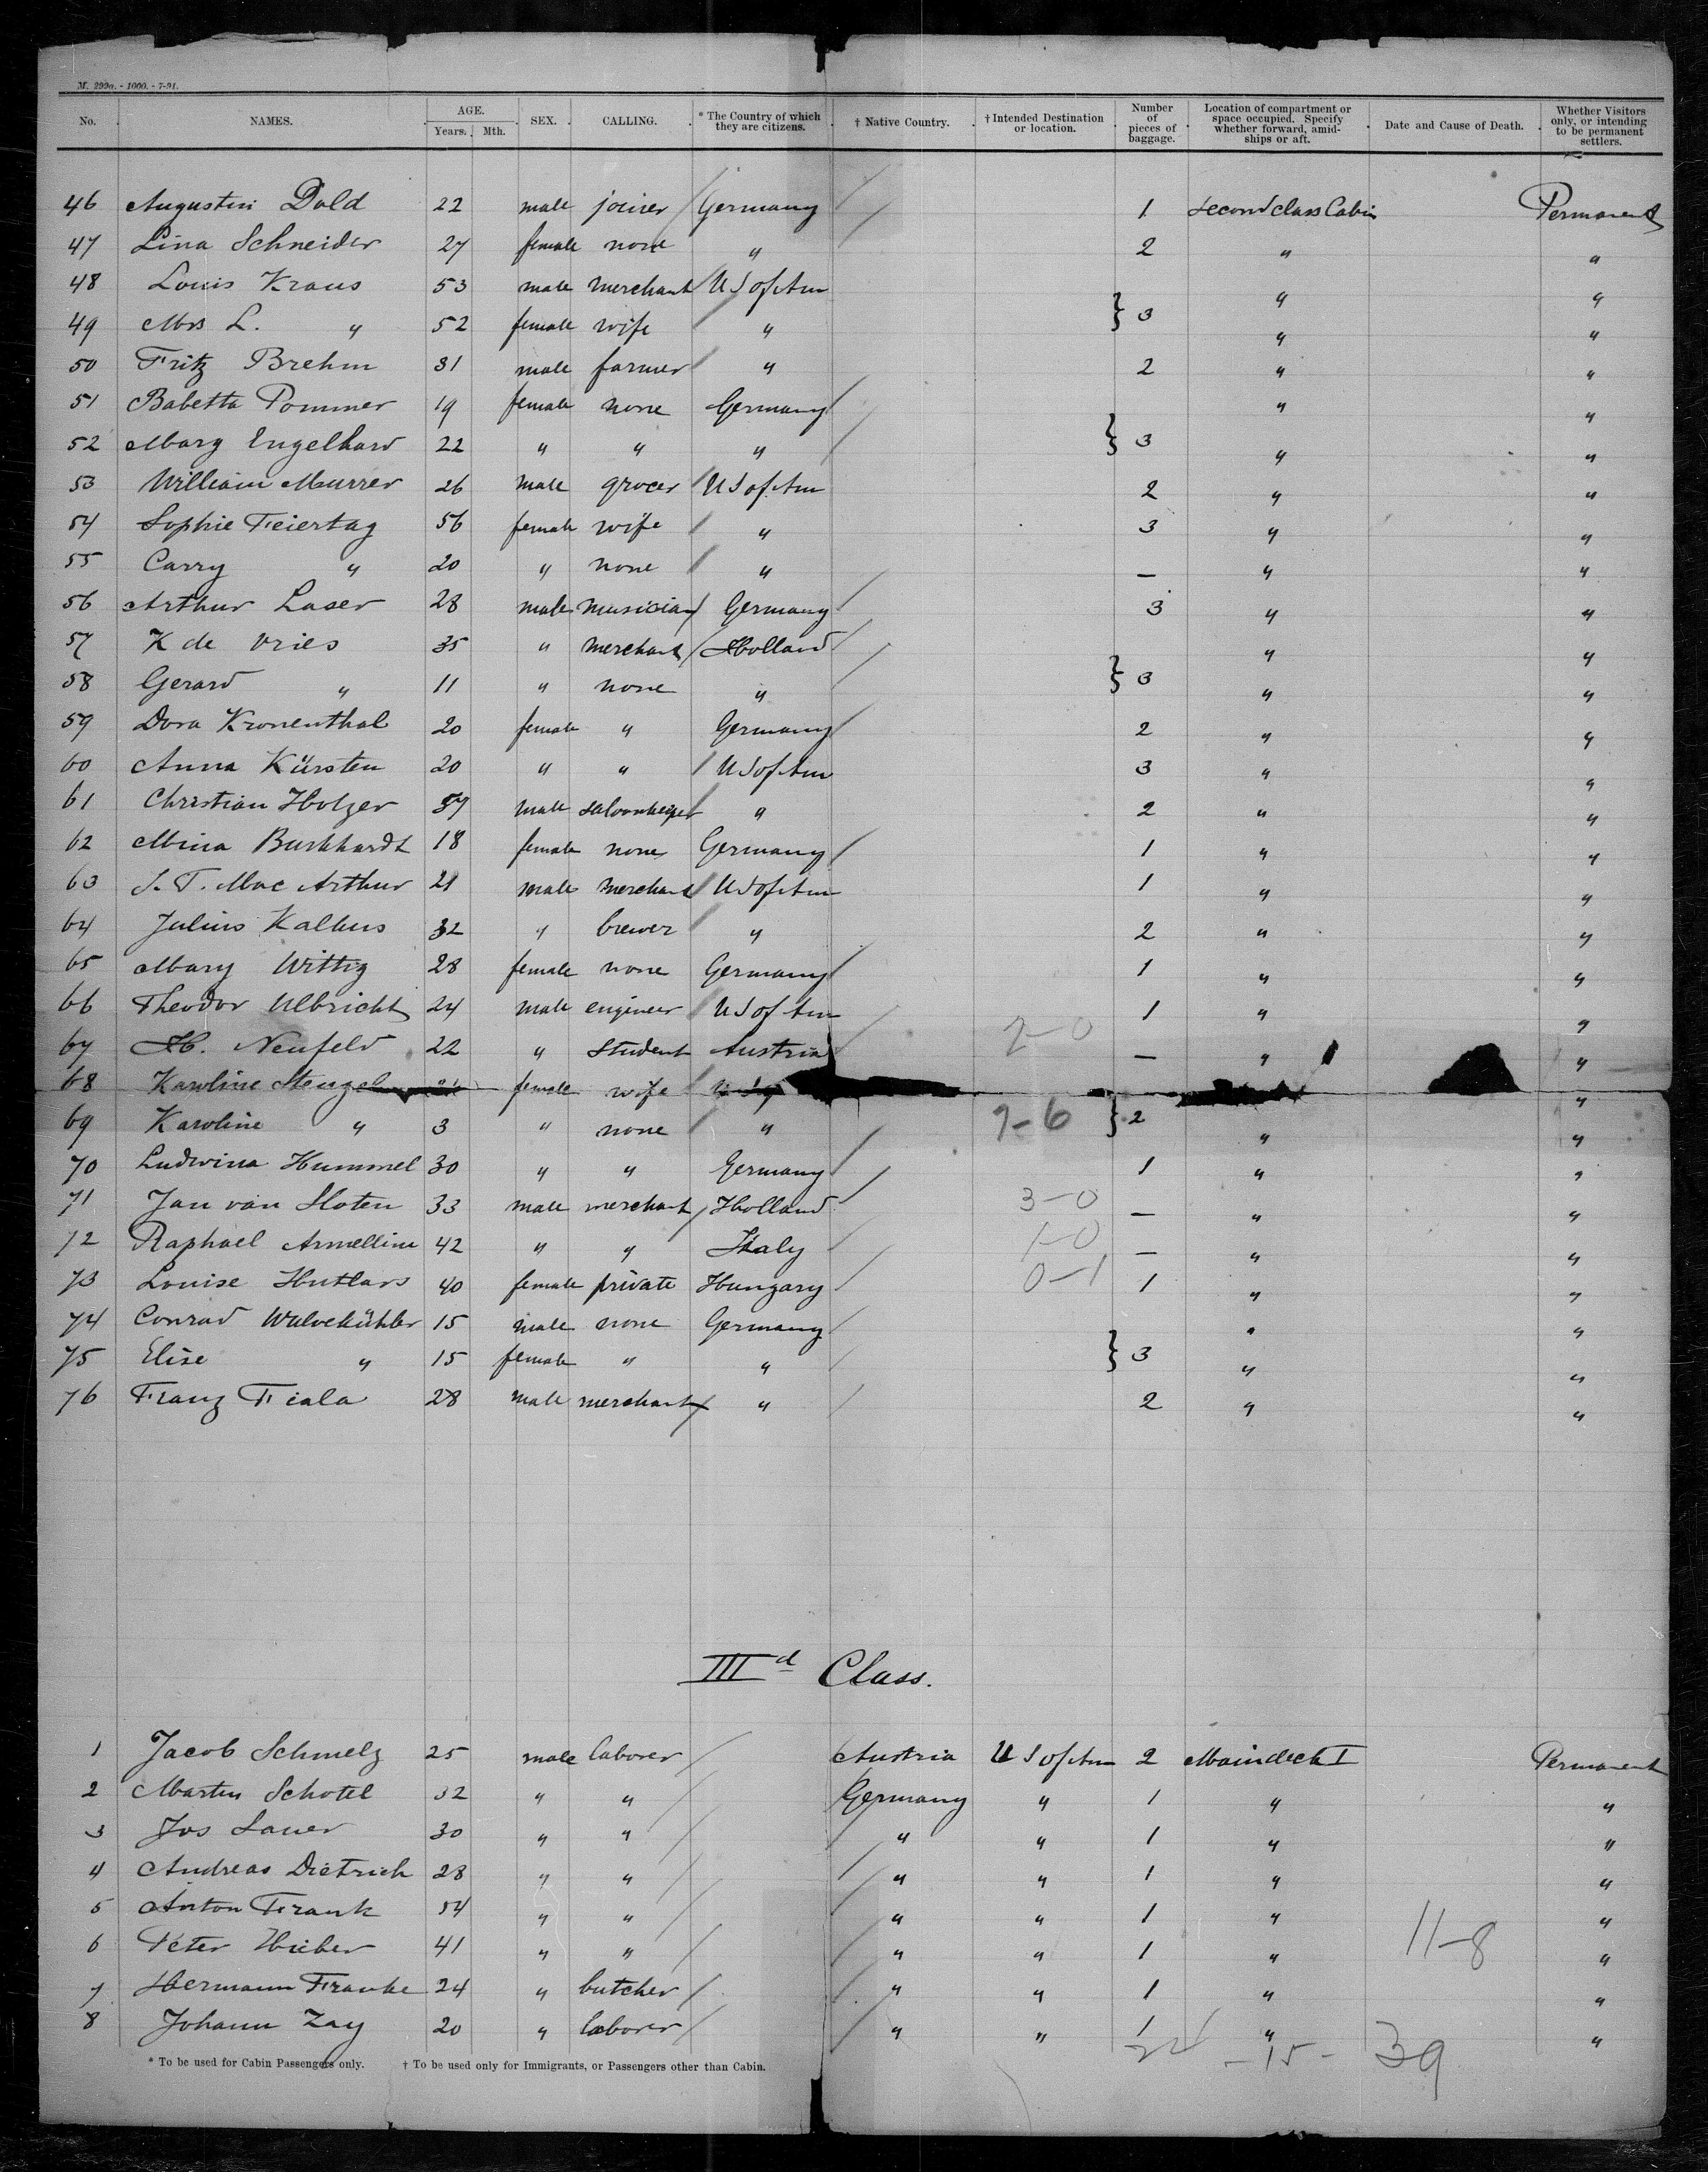 M. 299a. - 1000. - 7-91.
No. NAMES. AGE. Years. Mth. SEX. CALLING. * The Country of which they are citizens. † Native Country. † Intended Destination or location. Number of pieces of baggage. Location of compartment or space occupied. Specify whether forward, amidships or aft. Date and Cause of Death. Whether Visitors only, or intending to be permanent settlers.
46 Augustin Dold 22 male joiner Germany 1 Second class Cabin Permanent
47 Lina Schneider 27 female none " 2 " "
48 Louis Kraus 53 male merchant U S of Am " "
49 Mrs L. " 52 female wife " } 3 " "
50 Fritz Brehm 31 male farmer " 2 " "
51 Babetta Pommer 19 female none Germany " "
52 Marg Engelhard 22 " " " } 3 " "
53 William Murrer 26 male grocer U S of Am 2 " "
54 Sophie Feiertag 56 female wife " 3 " "
55 Carry " 20 " none " — " "
56 Arthur Laser 28 male musician Germany 3 " "
57 K de Vries 35 " merchant Holland " "
58 Gerard " 11 " none " } 3 " "
59 Dora Kronenthal 20 female " Germany 2 " "
60 Anna Kürsten 20 " " U S of Am 3 " "
61 Christian Holzer 37 male saloonkeeper " 2 " "
62 Mina Burkhardt 18 female none Germany 1 " "
63 J. T. Mac Arthur 21 male merchant U S of Am 1 " "
64 Julius Kalkus 32 " brewer " 2 " "
65 Mary Wittig 28 female none Germany 1 " "
66 Theodor Ulbricht 24 male engineer U S of Am 1 " "
67 H. Neufeld 22 " Student Austria 2-0 — " "
68 Karoline Stengel female wife "
69 Karoline " 3 " none " } 2 " "
70 Ludwina Hummel 30 " " Germany 1 " "
71 Jan van Sloten 33 male merchant Holland 3-0 — " "
72 Raphael Armellini 42 " " Italy 1-0 — " "
73 Louise Hutlars 40 female private Hungary 0-1 1 " "
74 Conrad 15 male none Germany " "
75 Elise " 15 female " " } 3 " "
76 Franz Fiala 28 male merchant " 2 " "
IIId Class.
1 Jacob Schmelz 25 male laborer Austria U S of Am 2 Maindeck I Permanent
2 Martin Schotel 32 " " Germany " 1 " "
3 Jos Lauer 30 " " " " 1 " "
4 Andreas Dietrich 28 " " " " 1 " "
5 Anton Frank 54 " " " " 1 " "
6 Peter Hieber 41 " " " " 1 " 11-8 "
7 Hermann Franke 24 " butcher " " 1 " "
8 Johann Zay 20 " laborer " " 1 " "
-15- 39
* To be used for Cabin Passengers only. † To be used only for Immigrants, or Passengers other than Cabin.